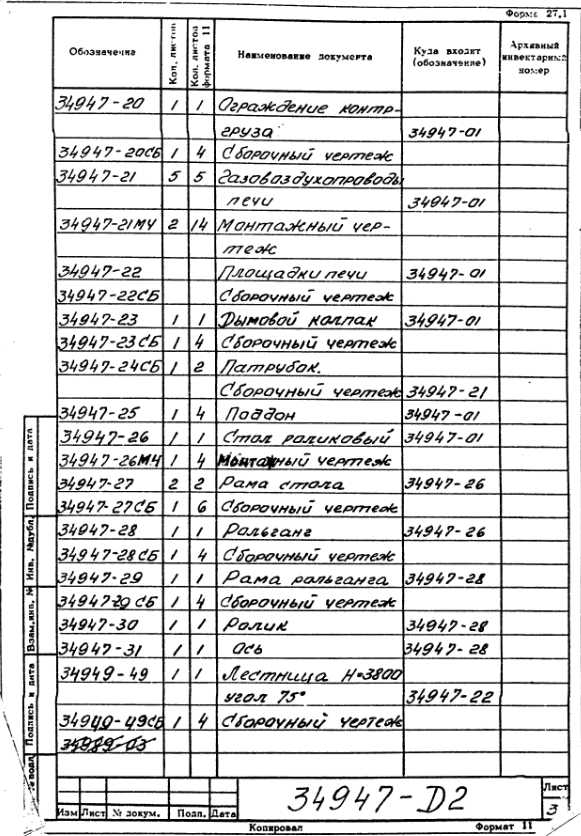 Форма 27.1
Обозначение Кол. листов Кол. листов формата 11 Наименование документа Куда входит (обозначение) Архивный инвентарный номер
34947-20 1 1 Ограждение контр-
груза 34947-01
34947-20СБ 1 4 Сборочный чертеж
34947-21 5 5 Газовоздухопроводы
печи 34947-01
34947-21МЧ 2 14 Монтажный чер-
теж
34947-22 Площадки печи 34947-01
34947-22СБ Сборочный чертеж
34947-23 1 1 Дымовой колпак 34947-01
34947-23СБ 1 4 Сборочный чертеж
34947-24СБ 1 2 Патрубок.
Сборочный чертеж 34947-21
34947-25 1 4 Поддон 34947-01
34947-26 1 1 Стол роликовый 34947-01
34947-26МЧ 1 4 Монтажный чертеж
34947-27 2 2 Рама стола 34947-26
34947-27СБ 1 6 Сборочный чертеж
34947-28 1 1 Рольганг 34947-26
34947-28СБ 1 4 Сборочный чертеж
34947-29 1 1 Рама рольганга 34947-28
34947-29СБ 1 4 Сборочный чертеж
34947-30 1 1 Ролик 34947-28
34947-31 1 1 Ось 34947-28
34949-49 1 1 Лестница H=3800
угол 75° 34947-22
34949-49СБ 1 4 Сборочный чертеж
Подпись и дата
Инв. №дубл.
Взам.инв. №
Подпись и дата
№ подл.
34947-D2
Лист
3
Изм Лист № докум. Подп. Дата
Копировал Формат 11